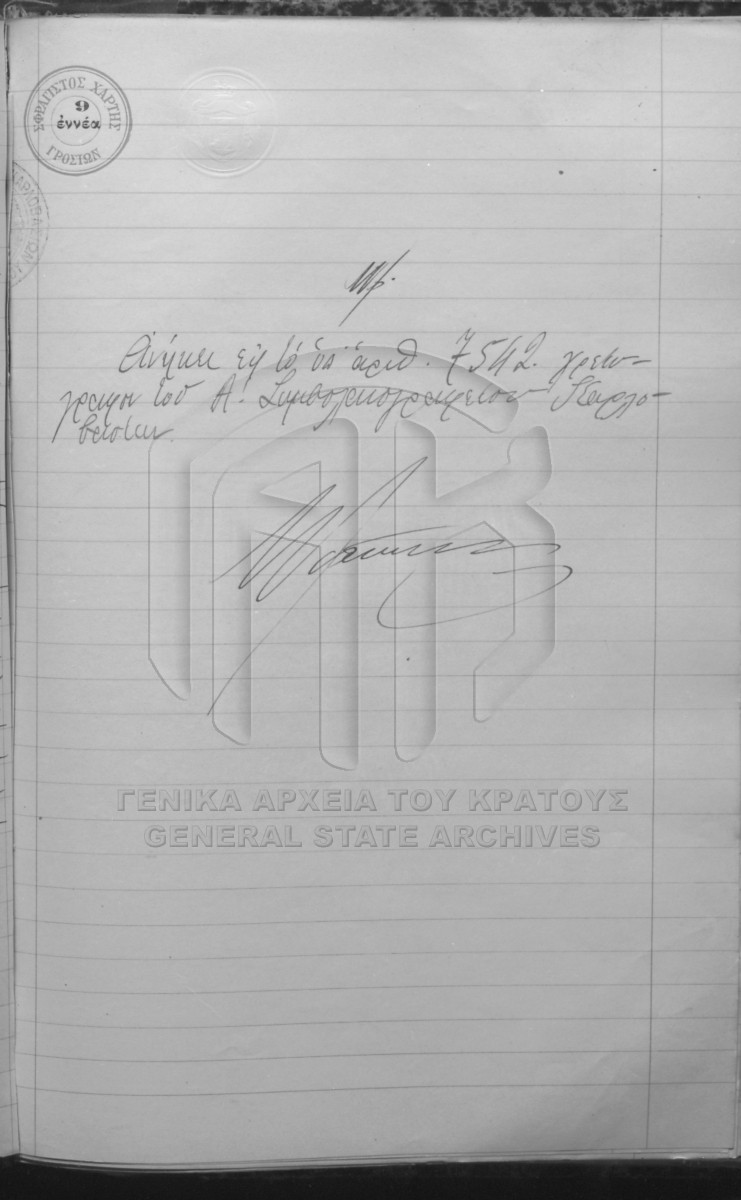 ΣΦΡΑΓΙΣΤΟΣ ΧΑΡΤΗΣ
9
ἐννέα
ΓΡΟΣΙΩΝ
Ἀνήκει εἰς τὸ ὑπ' ἀριθ. 7542. χρεώ-
γραφον τοῦ Α. Συμβολαιογραφείου Καρλο-
βασίων.
ΓΕΝΙΚΑ ΑΡΧΕΙΑ ΤΟΥ ΚΡΑΤΟΥΣ
GENERAL STATE ARCHIVES